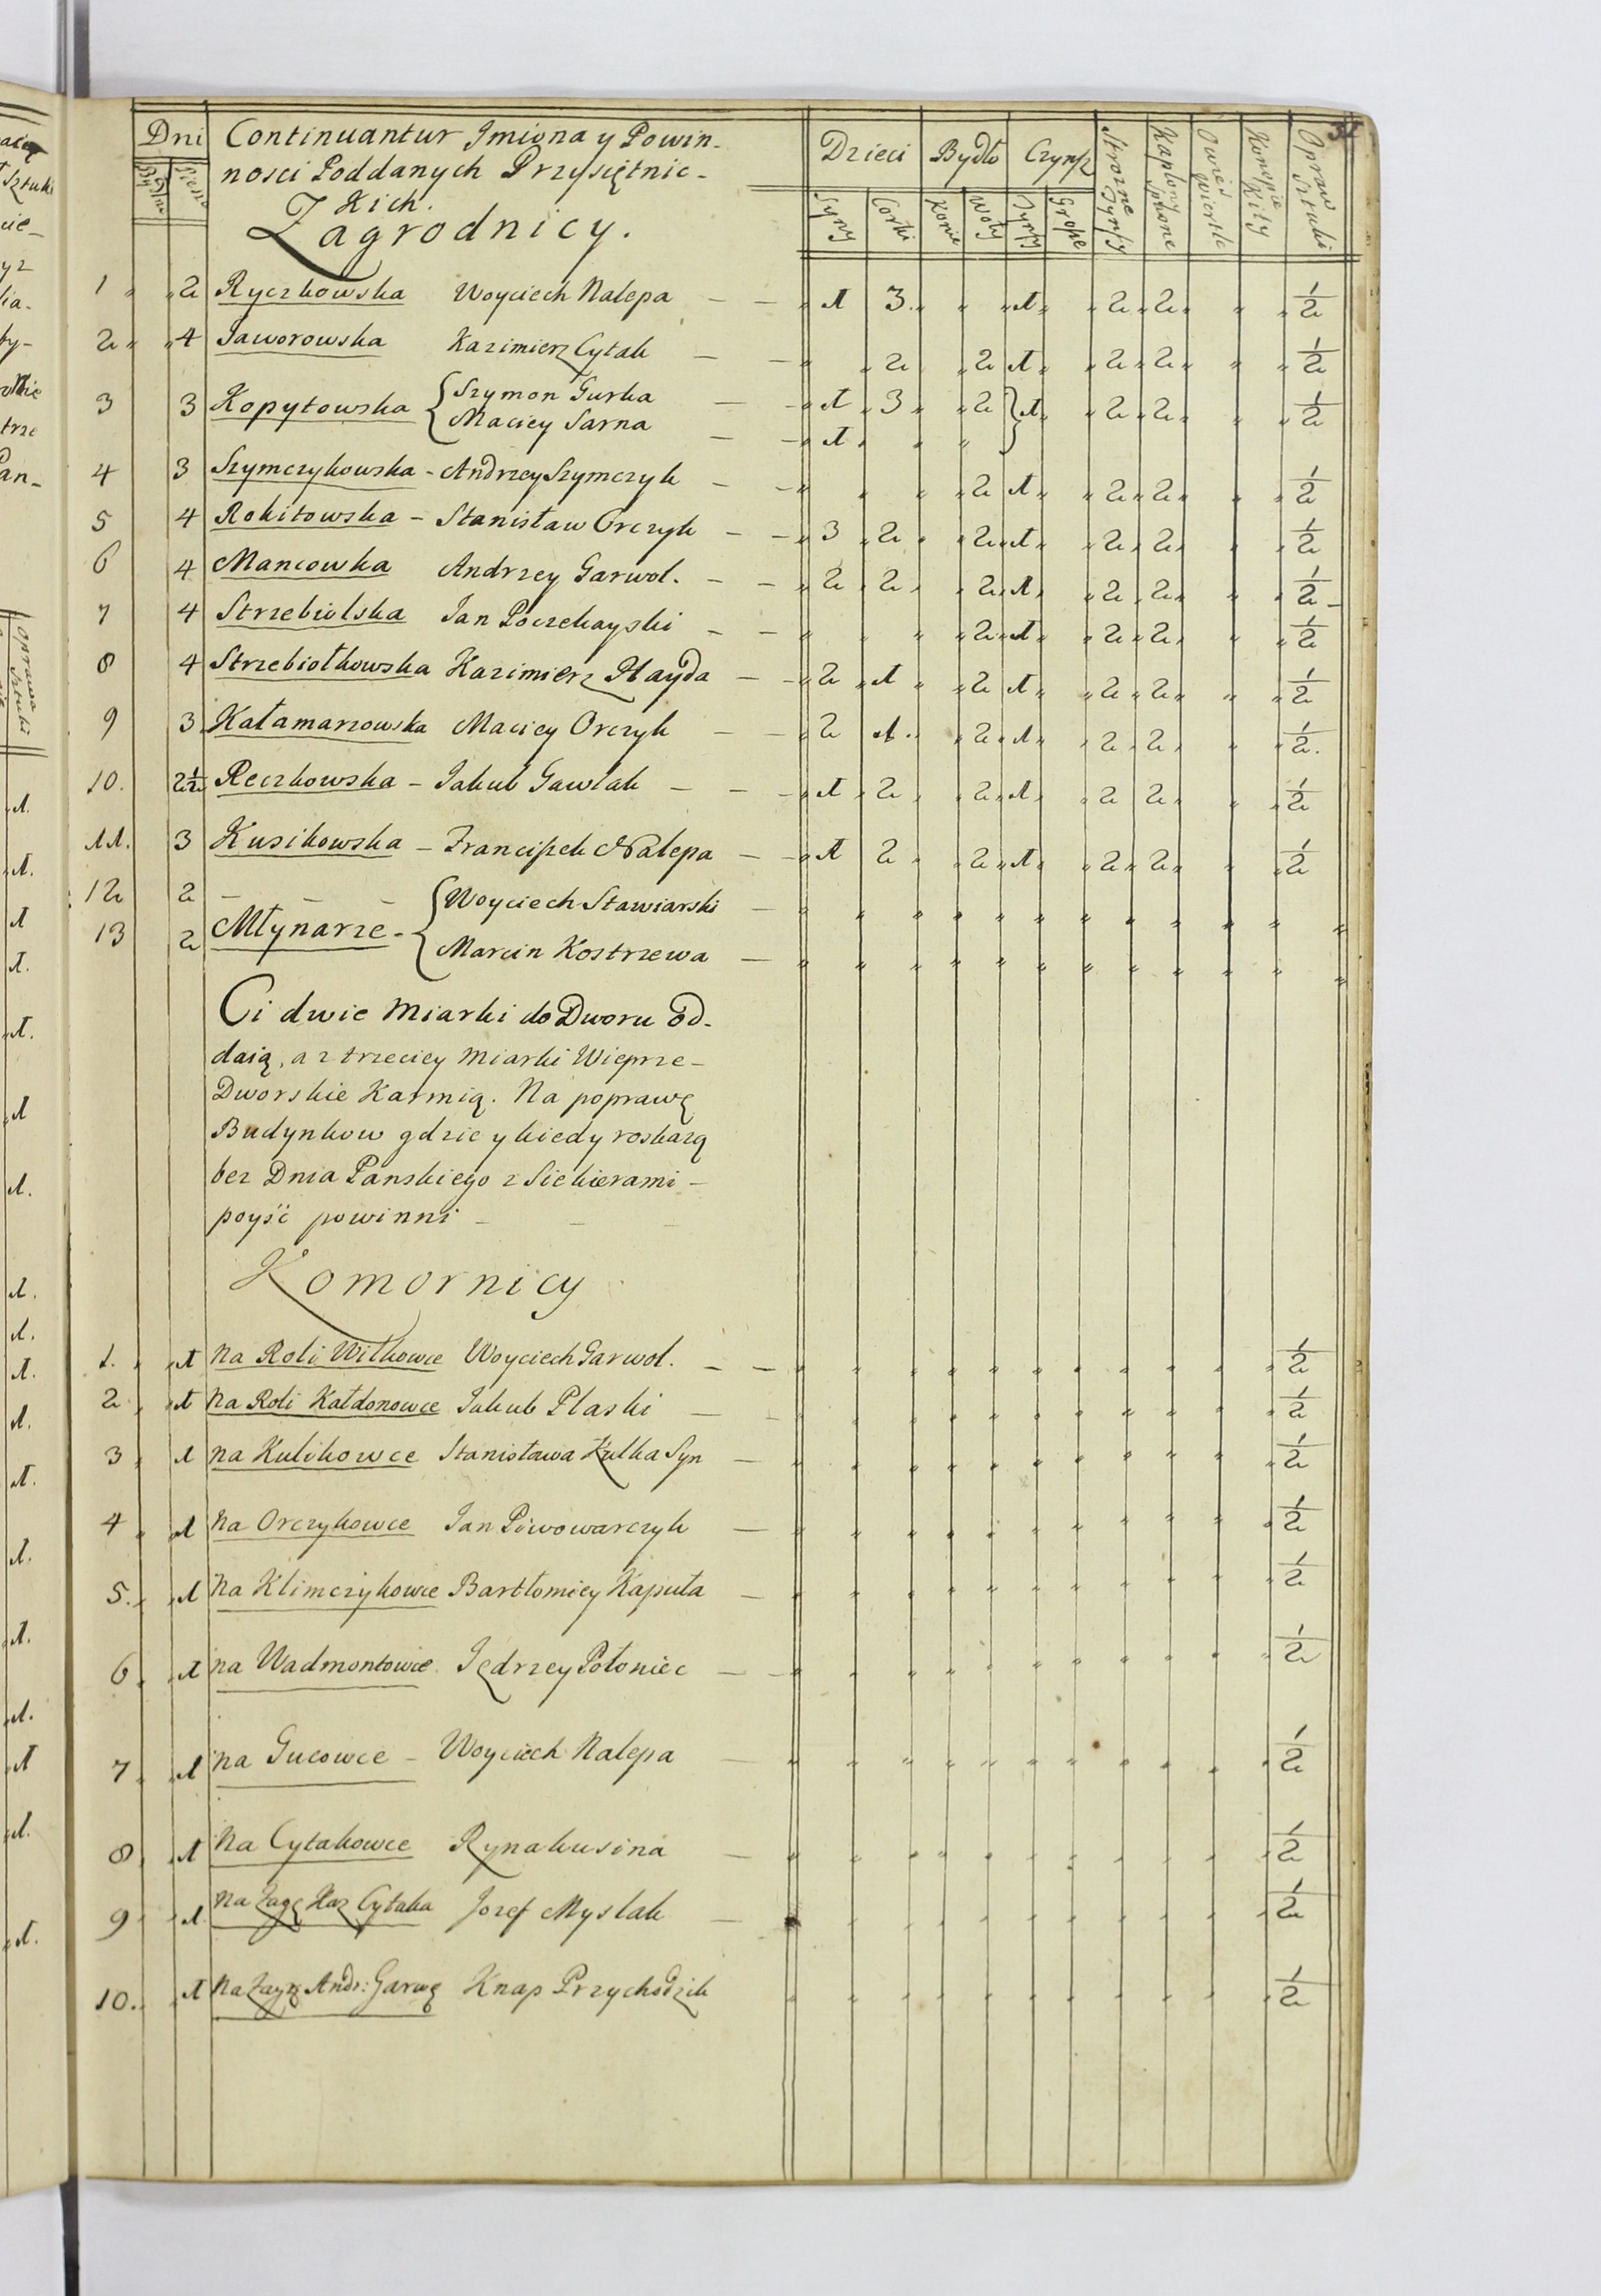 31
Dni Continuantur Imiona y Powin- Dzieci Bydło Czynsz Strozne Tynfy Kapłony Owies Konopie Kity Opraw Sztuki
nosci Poddanych Przysiętnic-
kich. Syny Corki Konie Woły Tynfy Grosze
Zagrodnicy.
1 " " 2 Ryczkowska Woyciech Nalepa — — " 1 3. " " " 1 " " 2 " 2 " " " " 1/2
2 " " 4 Jaworowska Kazimierz Cytak — — " 2 " 2 1 " " 2 " 2 " " " " 1/2
3 3 Kopytowska { Szymon Gurka — — " 1 " 3 " " 2 } 1 " " 2 " 2 " " " " 1/2
Maciey Sarna — — " 1 " " "
4 3 Szymczykowska - Andrzey Szymczyk — — " " " " 2 1 " " 2 " 2 " " " " 1/2
5 4 Rokitowska - Stanisław Orczyk — — " 3 " 2 " " 2 " 1 " " 2 " 2 " " " " 1/2
6 4 Mancowka Andrzey Garwol. — — " 2 " 2 " " 2 " 1 " " 2 " 2 " " " " 1/2
7 4 Strzebiolska Jan Poczekayski — — " " " " 2 " 1 " " 2 " 2 " " " " 1/2
8 4 Strzebiołkowska Kazimierz Hayda — — " 2 " 1 " " 2 1 " " 2 " 2 " " " " 1/2
9 3 Kałamarzowska Maciey Orczyk — — " 2 1. " " 2 " 1 " " 2 " 2 " " " " 1/2.
10. 2 1/2 Reczkowska - Jakub Gawlak — — " 1 " 2 " " 2 " 1 " " 2 2 " " " " 1/2
11. 3 Kusikowska - Franciszek Nalepa — — " 1 2 " " 2 " 1 " " 2 " 2 " " " " 1/2
12 2 — — — { Woyciech Stawiarski — " " " " " " " " " " " "
Młynarze -
13 2 { Marcin Kostrzewa — " " " " " " " " " " " "
Ci dwie Miarki do Dworu od-
daią, a z trzeciey Miarki Wieprze-
Dworskie Karmią. Na poprawę
Budynkow gdzie y kiedy roskazą
bez Dnia Panskiego z Siekierami -
poyść powinni —
Komornicy
1. " " 1 Na Roli Witkowce Woyciech Garwol. — — " " " " " " " " " " " 1/2
2 " " 1 Na Roli Kałdonowce Jakub Plaski — — " " " " " " " " " " " 1/2
3 " 1 na Kulikowce Stanisława Kulka Syn — " " " " " " " " " " " 1/2
4 " " 1 Na Orczykowce Jan Piwowarczyk — " " " " " " " " " " " 1/2
5. " " 1 Na Klimczykowce Bartłomiey Kaputa — " " " " " " " " " " " 1/2
6 " " 1 na Wadmontowce Jędrzey Połoniec — — " " " " " " " " " " " 1/2
7 " " 1 na Gucowce - Woyciech Nalepa — " " " " " " " " " " " 1/2
8 " " 1 Na Cytakowce Rynakusina — " " " " " " " " " " " 1/2
9 " " 1 Na Zagę Kaz Cytaka Jozef Myslak — " " " " " " " " " " " 1/2
10. " 1 Na Zagrę Andr: Garwę Knap Przychodzik " " " " " " " " " " " 1/2